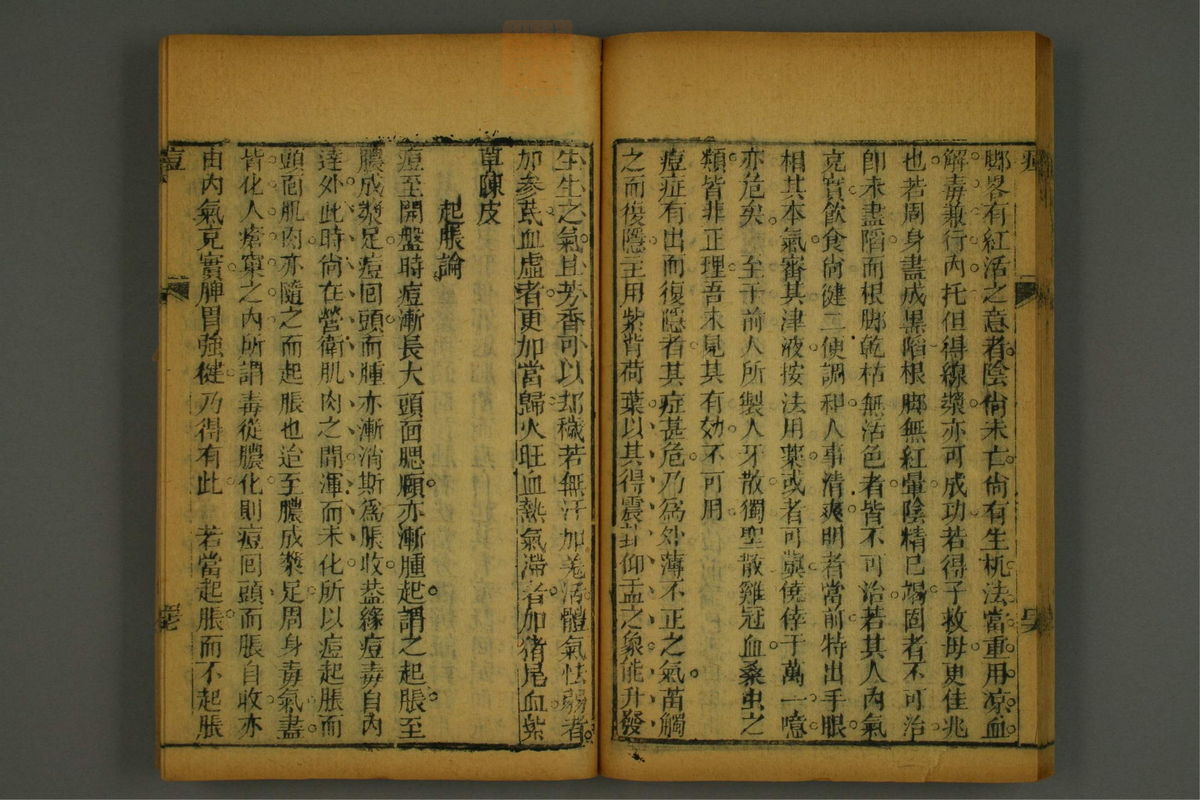 脚畧有紅活之意者陰尙未亡尙有生机法當重用凉血
解毒兼行內托但得線漿亦可成功若得子救母更佳兆
也若周身盡成黒陷根脚無紅暈陰精已竭固者不可治
卽未盡陷而根脚乾枯無活色者皆不可治若其人內氣
充實飮食尙健二便調和人事清爽明者當前特出手眼
相其本氣審其津液按法用藥或者可冀僥倖于萬一噫
亦危矣 至于前人所製人牙散獨聖散雞冠血桑虫之
類皆非正理吾未見其有効不可用
痘症有出而復隱者其症甚危乃爲外薄不正之氣苗觸
之而復隱主用紫背荷葉以其得震卦仰盂之象能升發
生生之氣且芳香可以却穢若無汗加羌活體氣怯弱者
加參芪血虛者更加當歸火旺血熱氣滯者加猪尾血紫
草陳皮
起脹論
痘至開盤時痘漸長大頭面腮頤亦漸腫起謂之起脹至
膿成漿足痘囘頭而腫亦漸消斯爲脹收葢緣痘毒自內
達外此時尙在營衛肌肉之間渾而未化所以痘起脹而
頭面肌肉亦隨之而起脹也迨至膿成漿足周身毒氣盡
皆化入瘡窠之內所謂毒從膿化則痘囘頭而脹自收亦
由內氣充實脾胃強健乃得有此 若當起脹而不起脹
痘